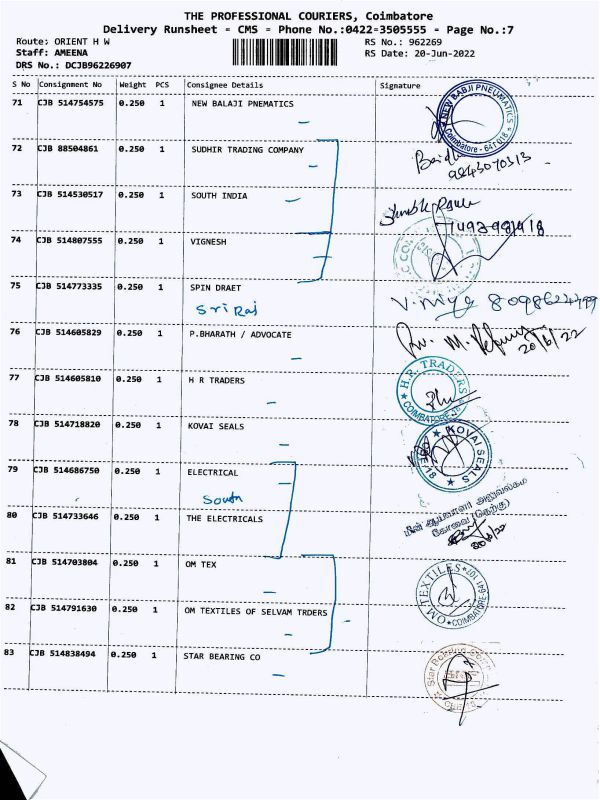 THE PROFESSIONAL COURIERS, Coimbatore
Delivery Runsheet - CMS - Phone No.:0422-3505555 - Page No.:7
Route: ORIENT H W RS No.: 962269
Staff: AMEENA RS Date: 20-Jun-2022
DRS No.: DCJB96226907
S No Consignment No Weight PCS Consignee Details Signature
71 CJB 514754575 0.250 1 NEW BALAJI PNEMATICS
NEW BABJI PNEUMATICS
Coimbatore - 641 018
72 CJB 88504861 0.250 1 SUDHIR TRADING COMPANY
9843070313
73 CJB 514530517 0.250 1 SOUTH INDIA
74 CJB 514807555 0.250 1 VIGNESH
75 CJB 514773335 0.250 1 SPIN DRAET
Sri Raj
76 CJB 514605829 0.250 1 P.BHARATH / ADVOCATE
20/6/22
77 CJB 514605810 0.250 1 H R TRADERS
H.R. TRADERS
COIMBATORE-18
78 CJB 514718820 0.250 1 KOVAI SEALS
KOVAI SEALS
79 CJB 514686750 0.250 1 ELECTRICAL
South
80 CJB 514733646 0.250 1 THE ELECTRICALS
கோவை (தெற்கு)
20/6/22
81 CJB 514703804 0.250 1 OM TEX
OM TEXTILES
COIMBATORE-641 107
82 CJB 514791630 0.250 1 OM TEXTILES OF SELVAM TRDERS
83 CJB 514838494 0.250 1 STAR BEARING CO